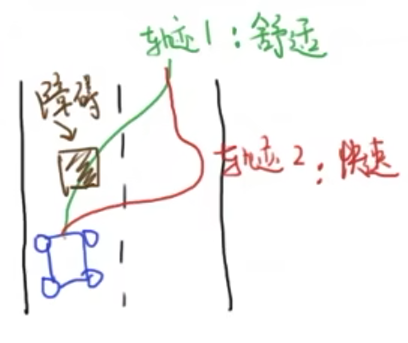 轨迹1：舒适
障碍
轨迹2：快速